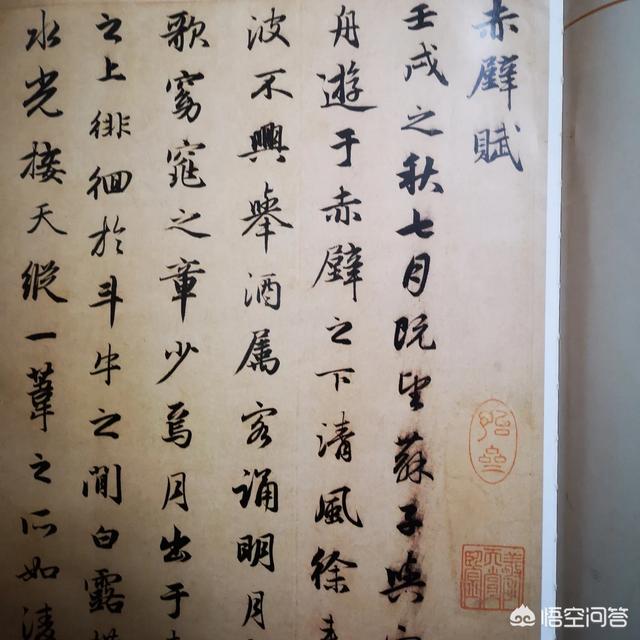 赤壁賦
壬戌之秋七月既望蘇子與
舟遊于赤壁之下清風徐
波不興舉酒属客誦明月
歌窈窕之章少焉月出于
之上徘徊於斗牛之間白露
水光接天縱一葦之所如凌
悟空问答